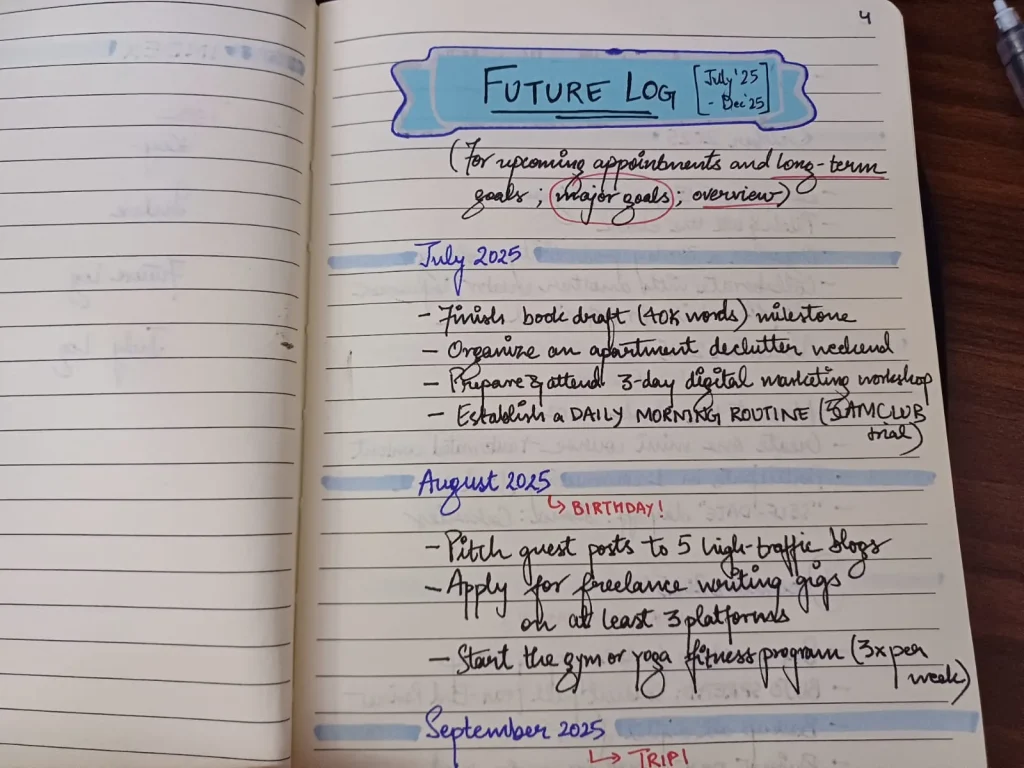 4
FUTURE LOG [July '25
- Dec '25]
(For upcoming appointments and long-term
goals ; major goals ; overview)
July 2025
- Finish book draft (40K words) milestone
- Organize an apartment declutter weekend
- Prepare & attend 3-day digital marketing workshop
- Establish a DAILY MORNING ROUTINE (5AMCLUB
trial)
August 2025
↳ BIRTHDAY!
- Pitch guest posts to 5 high-traffic blogs
- Apply for freelance writing gigs
on at least 3 platforms
- Start the gym or yoga fitness program (3x per
week)
September 2025
↳ TRIP!